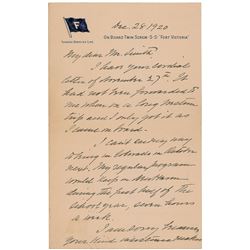 Dec. 28 1920
F
FURNESS BERMUDA LINE
ON BOARD TWIN SCREW S·S "FORT VICTORIA"
My dear Mr. Smith:
I have your cordial
letter of November 27th. It
had not been forwarded to
me when on a long western
trip and I only got it as
I came on board.
I can't see my way
to in Colorado in
next. My regular program
would keep me
during the first half of the
school year, seven hours
a week.
I am sorry
your kind